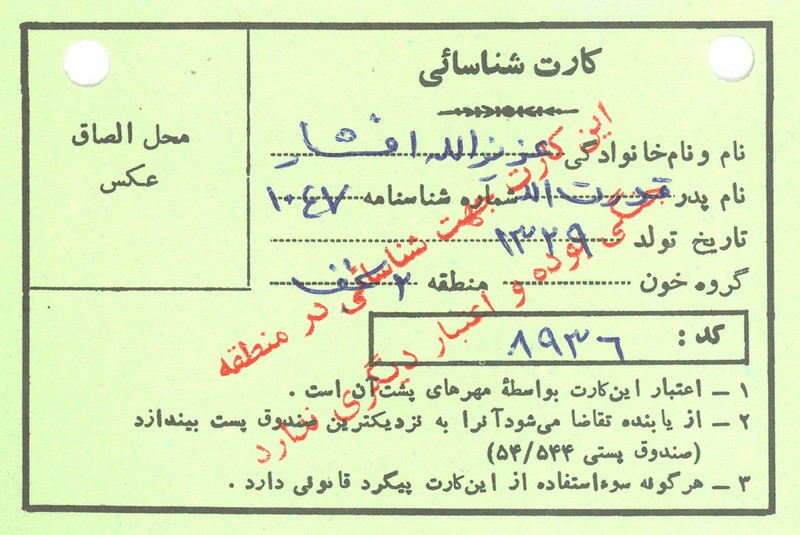 کارت شناسائی
محل الصاق
عکس
نام و نام‌خانوادگی عزیزالله افشار
نام پدر قدرت‌الله شماره شناسنامه ۱۰۴۷
تاریخ تولد ۱۳۲۹
گروه خون منطقه ۲
کد : ۸۹۳۶
۱ ــ اعتبار این‌کارت بواسطهٔ مهرهای پشت‌آن است .
۲ ــ از یابنده تقاضا می‌شود آنرا به نزدیکترین صندوق پست بیندازد
(صندوق پستی ۵۴/۵۴۴)
۳ ــ هرگونه سوءاستفاده از این‌کارت پیگرد قانونی دارد .
این کارت جهت شناسائی در منطقه
جنگی بوده و اعتبار دیگری ندارد